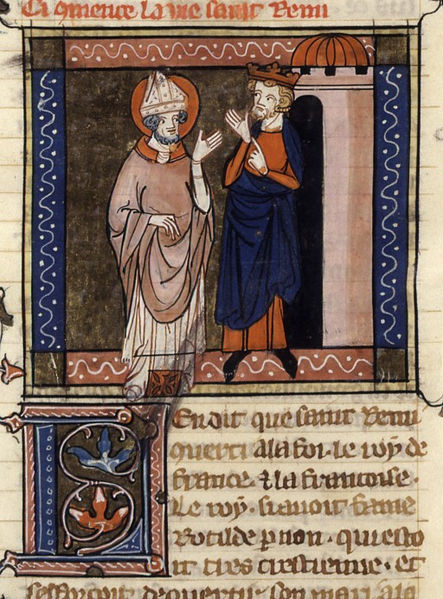 Ci cmence la vie saint Remi
L en dit que saint Remi
querti a la foi · le roy de
france · & la francoise ·
Le roy · si auoit fame
Rotilde p non · qui esto
it tres crestienne · et